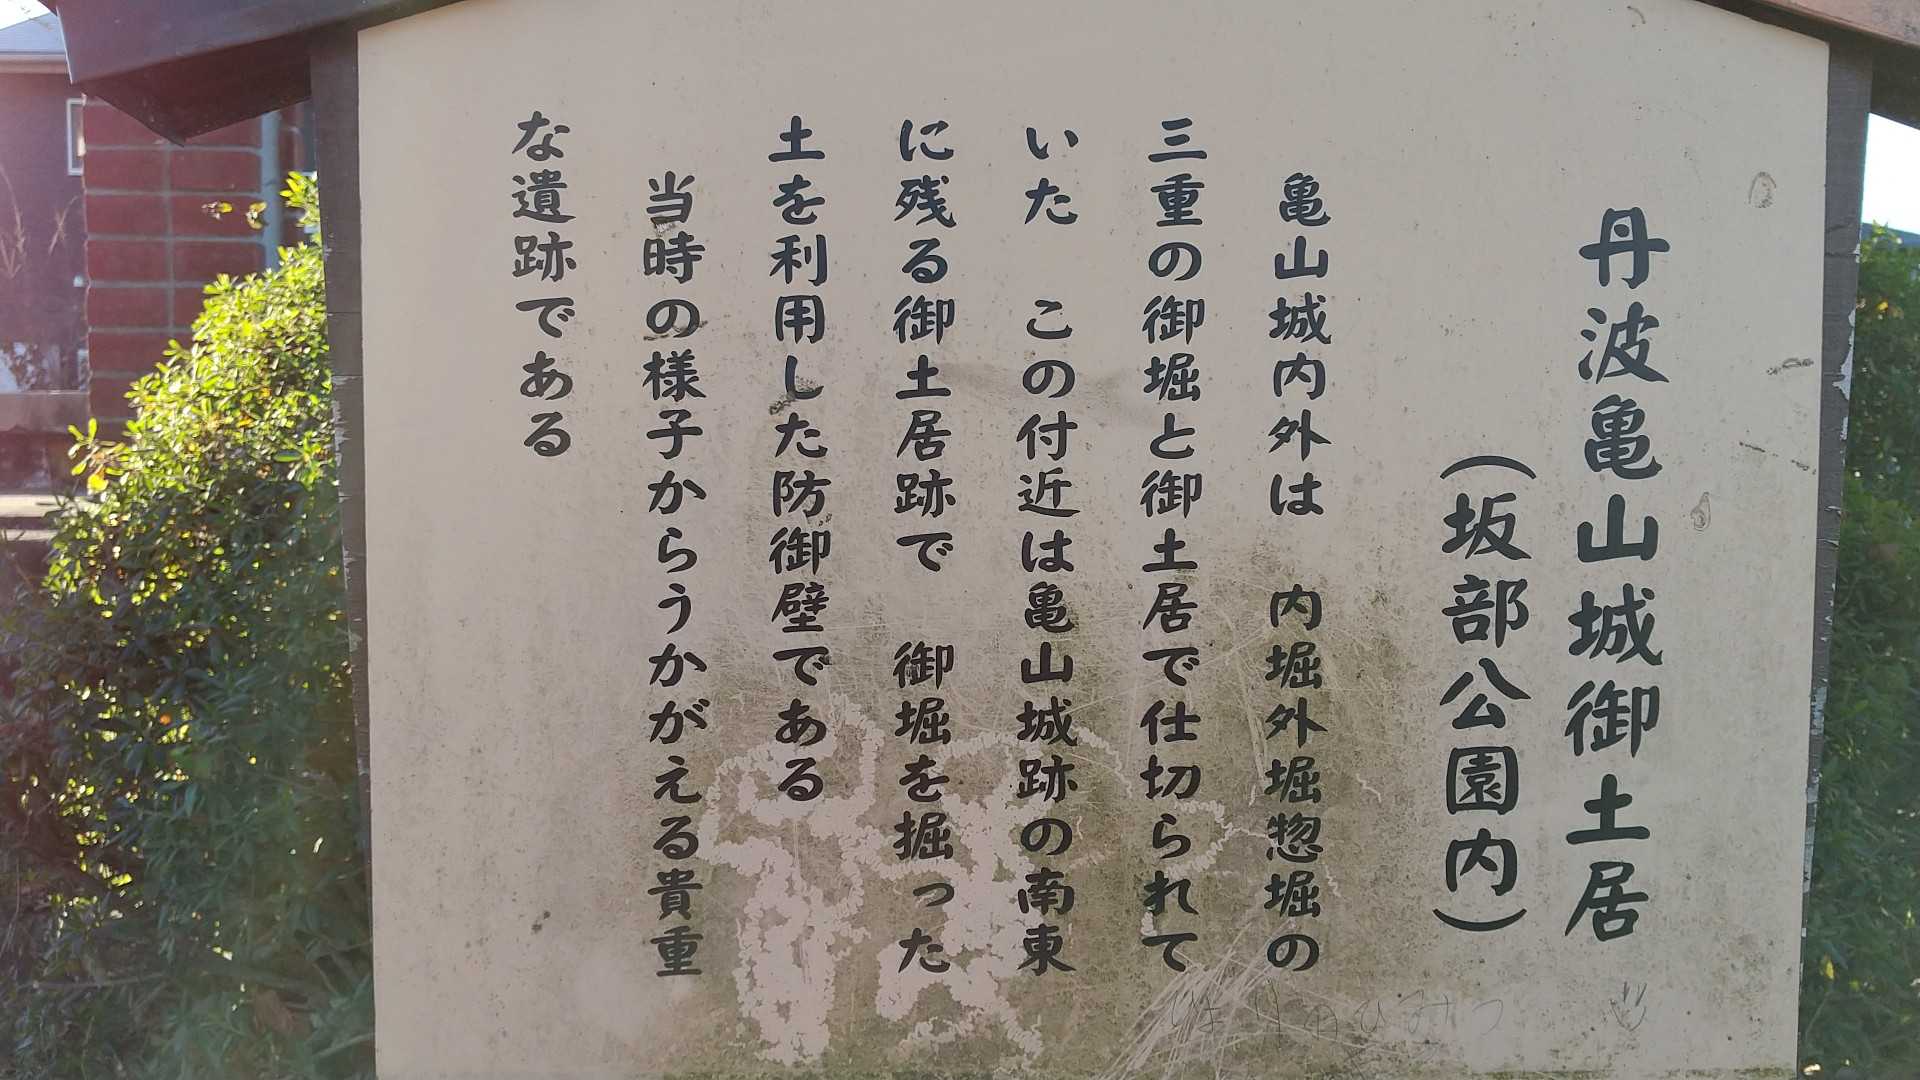 丹波亀山城御土居
（坂部公園内）
亀山城内外は　内堀外堀惣堀の
三重の御堀と御土居で仕切られて
いた　この付近は亀山城跡の南東
に残る御土居跡で　御堀を掘った
土を利用した防御壁である
当時の様子からうかがえる貴重
な遺跡である